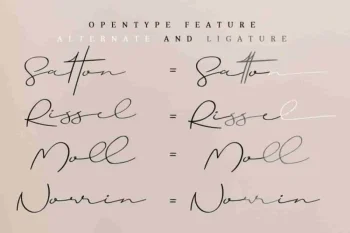 OPENTYPE FEATURE
ALTERNATE AND LIGATURE
Satton = Satton
Rissel = Rissel
Moll = Moll
Norrin = Norrin